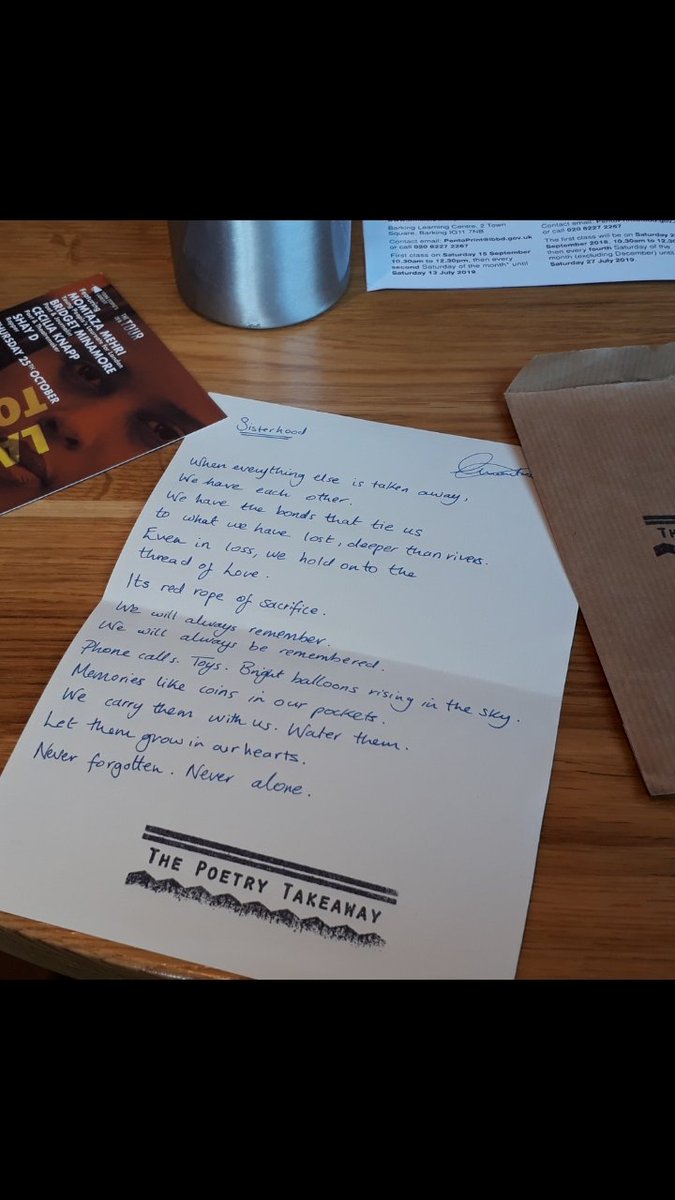 Barking Learning Centre, 2 Town
Square, Barking IG11 7NB
Contact email: PentaPrint@lbbd.gov.uk
or call 020 8227 2267
First class on Saturday 15 September
10.30am to 12.30pm, then every
second Saturday of the month* until
Saturday 13 July 2019.
or call 020 8227 2267
The first class will be on Saturday
September 2018, 10.30am to
then every fourth Saturday of the
month (excluding December) until
Saturday 27 July 2019.
THE TOUR
Featuring
MOMTAZA MEHRI
BRIDGET MINAMORE
CECILIA KNAPP
SHAY D
THURSDAY 25TH OCTOBER
Sisterhood
When everything else is taken away,
We have each other.
We have the bonds that tie us
to what we have lost, deeper than rivers.
Even in loss, we hold on to the
thread of Love.
Its red rope of sacrifice.
We will always remember.
We will always be remembered.
Phone calls. Toys. Bright balloons rising in the sky.
Memories like coins in our pockets.
We carry them with us. Water them.
Let them grow in our hearts.
Never forgotten. Never alone.
THE POETRY TAKEAWAY